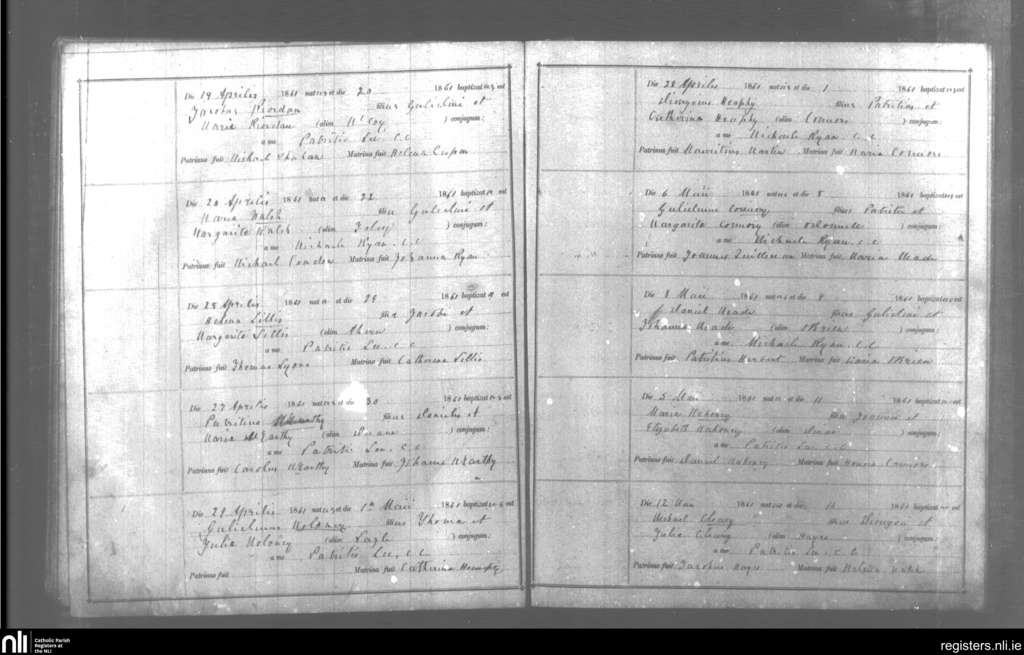 Die 19 Aprilis 1861 natus et die 20 1861 baptizatus est
Jacobus Riordan filius Gulielmi et
Maria Riordan (alias McCoy ) conjugum:
a me Patritio Lee, C.C.
Patrinus fuit Michael Phelan Matrina fuit Helena
Die 20 Aprilis 1861 nata et die 22 1861 baptizata est
Maria Walsh filia Gulielmi et
Margarita Walsh (alias Foley ) conjugum:
a me Michaele Ryan. C.C.
Patrinus fuit Michael Matrina fuit Johanna Ryan
Die 28 Aprilis 1861 nata et die 29 1861 baptizata est
Helena Lillis filia Jacobi et
Margarita Lillis (alias Ahern ) conjugum:
a me Patritio Lee, C.C.
Patrinus fuit Thomas Lyons Matrina fuit Catherina Lillis
Die 27 Aprilis 1861 natus et die 30 1861 baptizatus est
Patritius McCarthy filius Danielis et
Maria McCarthy (alias Duane ) conjugum:
a me Patritio Lee, C.C.
Patrinus fuit Carolus McCarthy Matrina fuit Johanna McCarthy
Die 29 Aprilis 1861 natus et die 1a Maii 1861 baptizatus est
Gulielmus Moloney filius Thoma et
Julia Moloney (alias ) conjugum:
a me Patritio Lee, C.C.
Patrinus fuit Matrina fuit Catherina
Die 28 Aprilis 1861 natus et die 1 1861 baptizatus est
Heaphy filius Patritius et
Catherina Heaphy (alias Connors ) conjugum:
a me Michaele Ryan. C.C.
Patrinus fuit Mauritius Martin Matrina fuit Maria Connors
Die 6 Maii 1861 natus et die 8 1861 baptizatus est
Gulielmus Conroy filius Patritii et
Margarita Conroy (alias ) conjugum:
a me Michaele Ryan. C.C.
Patrinus fuit Joannes Matrina fuit Maria Meade
Die 8 Maii 1861 natus et die 8 1861 baptizatus est
Daniel Meade filius Gulielmi et
Johanna Meade (alias OBrien ) conjugum:
a me Michaele Ryan, C.C.
Patrinus fuit Patritius Herbert Matrina fuit Maria OBrien
Die 5 Maii 1861 nata et die 11 1861 baptizata est
Maria Mahony filia Joannis et
Elizabeth Mahoney (alias ) conjugum:
a me Patritio Lee, C.C.
Patrinus fuit Daniel Mahony Matrina fuit Honora Connors
Die 12 Maii 1861 natus et die 1861 baptizatus est
Michael Cleary filius et
Julia Cleary (alias Hayes ) conjugum:
a me Patritio Lee, C.C.
Patrinus fuit Jacobus Hayes Matrina fuit Helena Walsh
nli Catholic Parish
Registers at
the NLI
registers.nli.ie